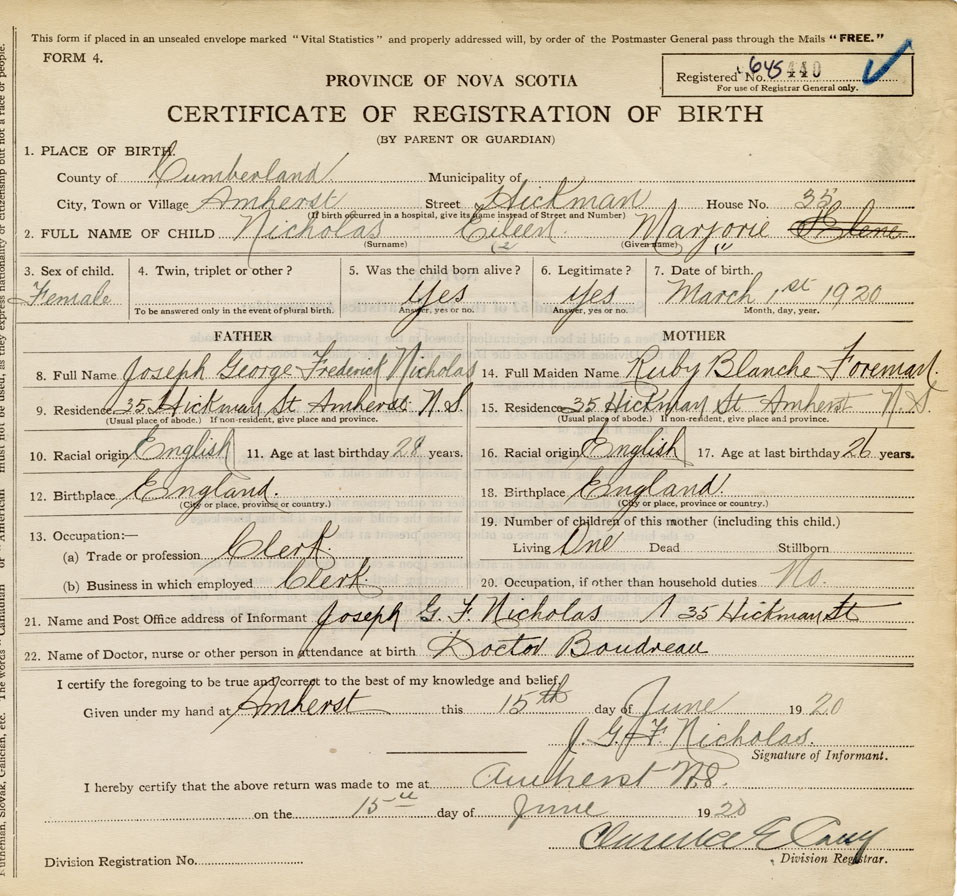 This form if placed in an unsealed envelope marked "Vital Statistics" and properly addressed will, by order of the Postmaster General pass through the Mails "FREE."
FORM 4.
Registered No. 645 440
For use of Registrar General only.
PROVINCE OF NOVA SCOTIA
CERTIFICATE OF REGISTRATION OF BIRTH
(BY PARENT OR GUARDIAN)
1. PLACE OF BIRTH.
County of Cumberland Municipality of
City, Town or Village Amherst Street Hickman House No. 35
(If birth occurred in a hospital, give its name instead of Street and Number)
2. FULL NAME OF CHILD Nicholas Eileen Marjorie
(Surname) (2 (Given name) 1"
3. Sex of child. 4. Twin, triplet or other? 5. Was the child born alive? 6. Legitimate? 7. Date of birth.
Female Yes Yes March 1st 1920
To be answered only in the event of plural birth. Answer, yes or no. Answer, yes or no. Month, day, year.
FATHER MOTHER
8. Full Name Joseph George Frederick Nicholas 14. Full Maiden Name Ruby Blanche Foreman.
9. Residence 35 Hickman St Amherst N.S. 15. Residence 35 Hickman St Amherst N.S.
(Usual place of abode.) If non-resident, give place and province. (Usual place of abode.) If non-resident, give place and province.
10. Racial origin English 11. Age at last birthday 28 years. 16. Racial origin English 17. Age at last birthday 26 years.
12. Birthplace England. 18. Birthplace England.
(City or place, province or country.) (City or place, province or country.)
13. Occupation:— 19. Number of children of this mother (including this child.)
(a) Trade or profession Clerk. Living One Dead Stillborn
(b) Business in which employed Clerk. 20. Occupation, if other than household duties No.
21. Name and Post Office address of Informant Joseph G. F. Nicholas 35 Hickman St
22. Name of Doctor, nurse or other person in attendance at birth Doctor Boudreau
I certify the foregoing to be true and correct to the best of my knowledge and belief.
Given under my hand at Amherst this 15th day of June 1920
J. G. F. Nicholas.
Signature of Informant.
I hereby certify that the above return was made to me at Amherst N.S.
on the 15th day of June 1920
Clarence E
Division Registrar.
Division Registration No.